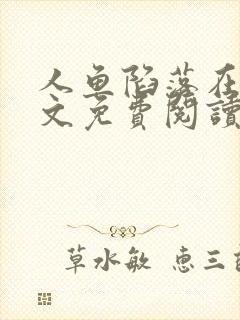 人鱼陷落在
文免費閱讀
草水敏 恵三